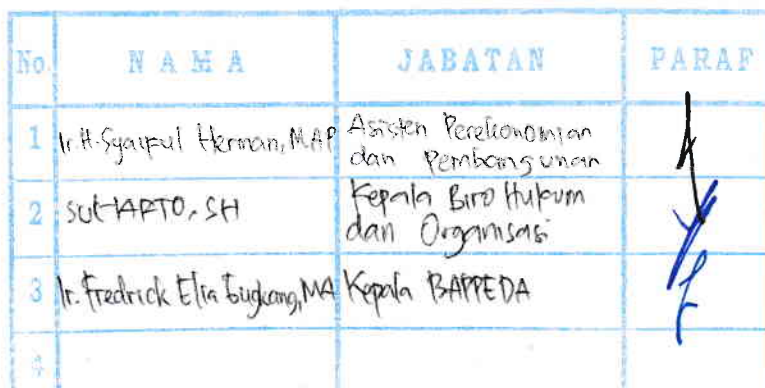 No. NAMA JABATAN PARAF
1 Ir. H. Syaiful Herman, MAP Asisten Perekonomian
dan Pembangunan
2 SUHARTO, SH Kepala Biro Hukum
dan Organisasi
3 Ir. Fredrick Elia Gugkang, MA Kepala BAPPEDA
4